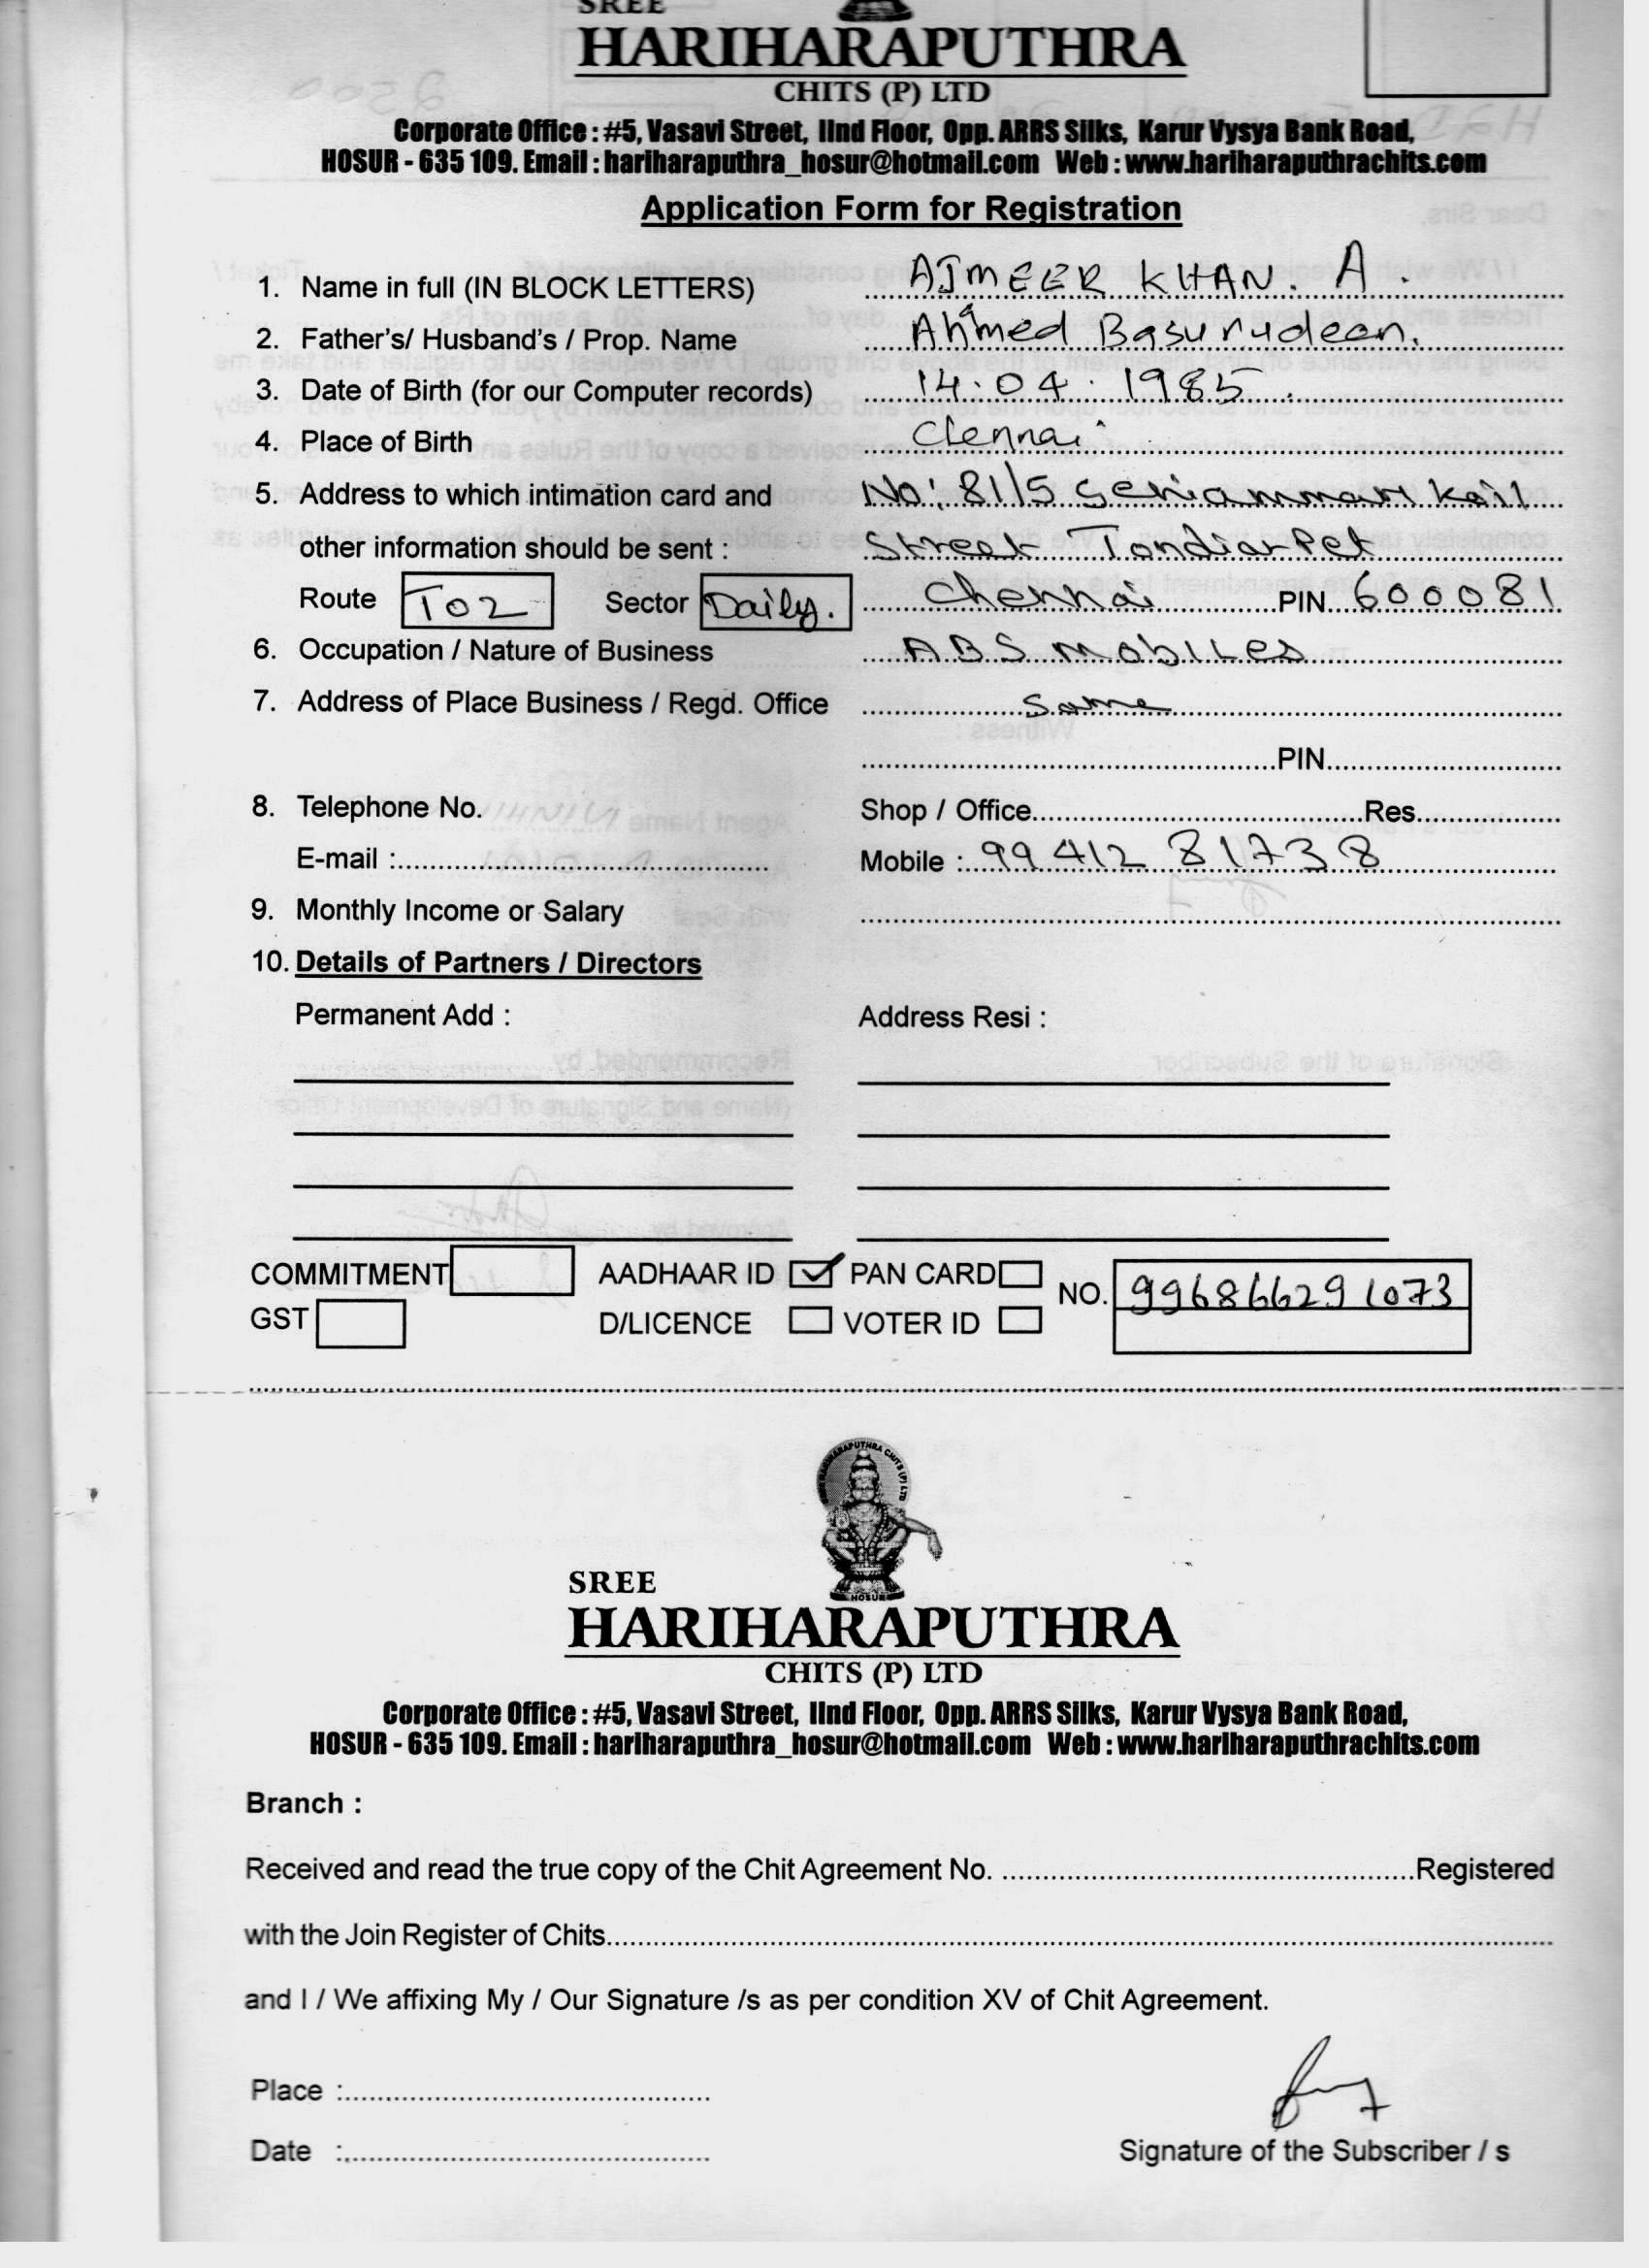 SREE
HARIHARAPUTHRA
CHITS (P) LTD
Corporate Office : #5, Vasavi Street, IInd Floor, Opp. ARRS Silks, Karur Vysya Bank Road,
HOSUR - 635 109. Email : hariharaputhra_hosur@hotmail.com Web : www.hariharaputhrachits.com
Application Form for Registration
1. Name in full (IN BLOCK LETTERS) AJMEER KHAN. A.
2. Father's/ Husband's / Prop. Name Ahmed Basurudeen.
3. Date of Birth (for our Computer records) 14.04.1985
4. Place of Birth Clennai
5. Address to which intimation card and No: 81/5 Seniamman koil
other information should be sent : Street Tondiarpet
Route T02 Sector Daily. Chennai PIN 600081
6. Occupation / Nature of Business ABS Mobiles
7. Address of Place Business / Regd. Office Same
PIN
8. Telephone No. Shop / Office Res.
E-mail : Mobile : 99412 81738
9. Monthly Income or Salary
10. Details of Partners / Directors
Permanent Add : Address Resi :
COMMITMENT AADHAAR ID ✓ PAN CARD NO. 996866291073
GST D/LICENCE VOTER ID
HARIHARAPUTHRA CHITS (P) LTD
HOSUR
SREE
HARIHARAPUTHRA
CHITS (P) LTD
Corporate Office : #5, Vasavi Street, IInd Floor, Opp. ARRS Silks, Karur Vysya Bank Road,
HOSUR - 635 109. Email : hariharaputhra_hosur@hotmail.com Web : www.hariharaputhrachits.com
Branch :
Received and read the true copy of the Chit Agreement No. Registered
with the Join Register of Chits
and I / We affixing My / Our Signature /s as per condition XV of Chit Agreement.
Place :
Date :
Signature of the Subscriber / s